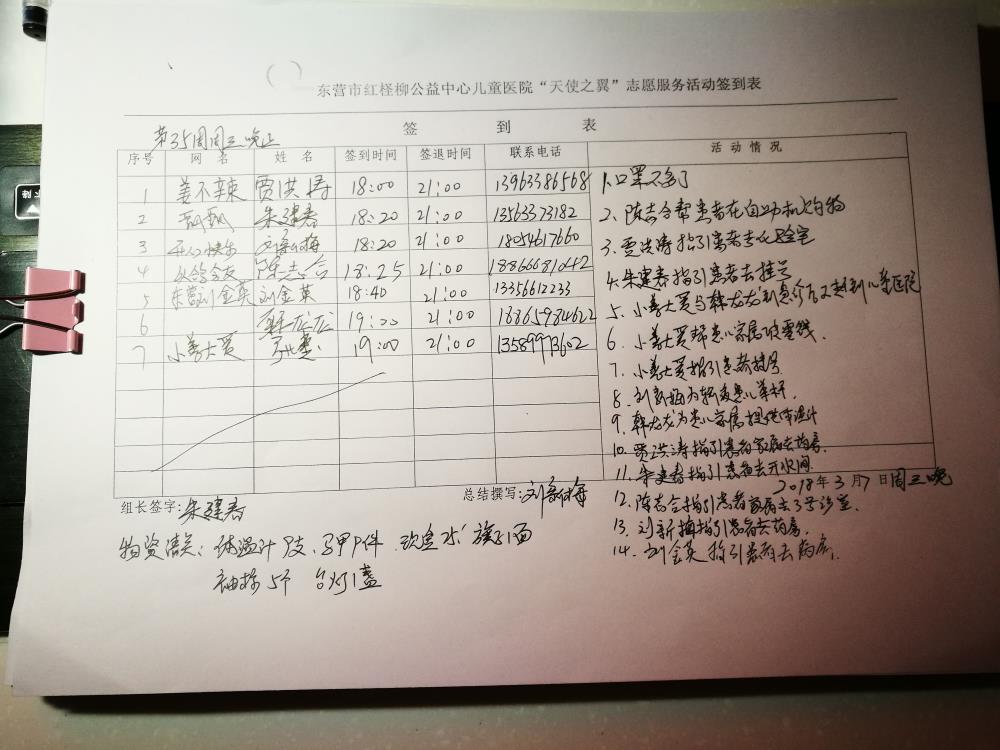 东营市红柽柳公益中心儿童医院“天使之翼”志愿服务活动签到表
签 到 表
第35周周三晚上
序号 网 名 姓 名 签到时间 签退时间 联系电话 活 动 情 况
1 姜不辣 贾洪涛 18:00 21:00 13963386568
2 朱建春 18:20 21:00 13563373182
3 开心快乐 刘新梅 18:20 21:00 18054617660
4 陈志合 18:25 21:00 18866681042
5 东营刘金英 刘金英 18:40 21:00 13356612233
6 韩龙龙 19:00 21:00 16865984622
7 小美士贾 19:00 21:00 13589973602
1.口罩不多了
2、陈志合帮患者在自动机购物
3.贾洪涛指引患者去化验室
4.朱建春指引患者去挂号
5、小美士贾与韩龙龙到儿童医院
6、小美士贾帮患儿家属换零钱
7.小美士贾指引患者挂号
8.刘新梅为输液患儿举杆.
9、韩龙龙为患儿家属提供体温计
10.贾洪涛指引患者家属去药房
11.朱建春指引患者去开水间.
12.陈志合指引患者家属去3号诊室.
13.刘新梅指引患者去药房.
14.刘金英指引患者去病房.
组长签字:朱建春 总结撰写:刘新梅 2018年3月7日周三晚
物资情况:体温计 马甲 旗子1面
袖标5个 台灯1盏